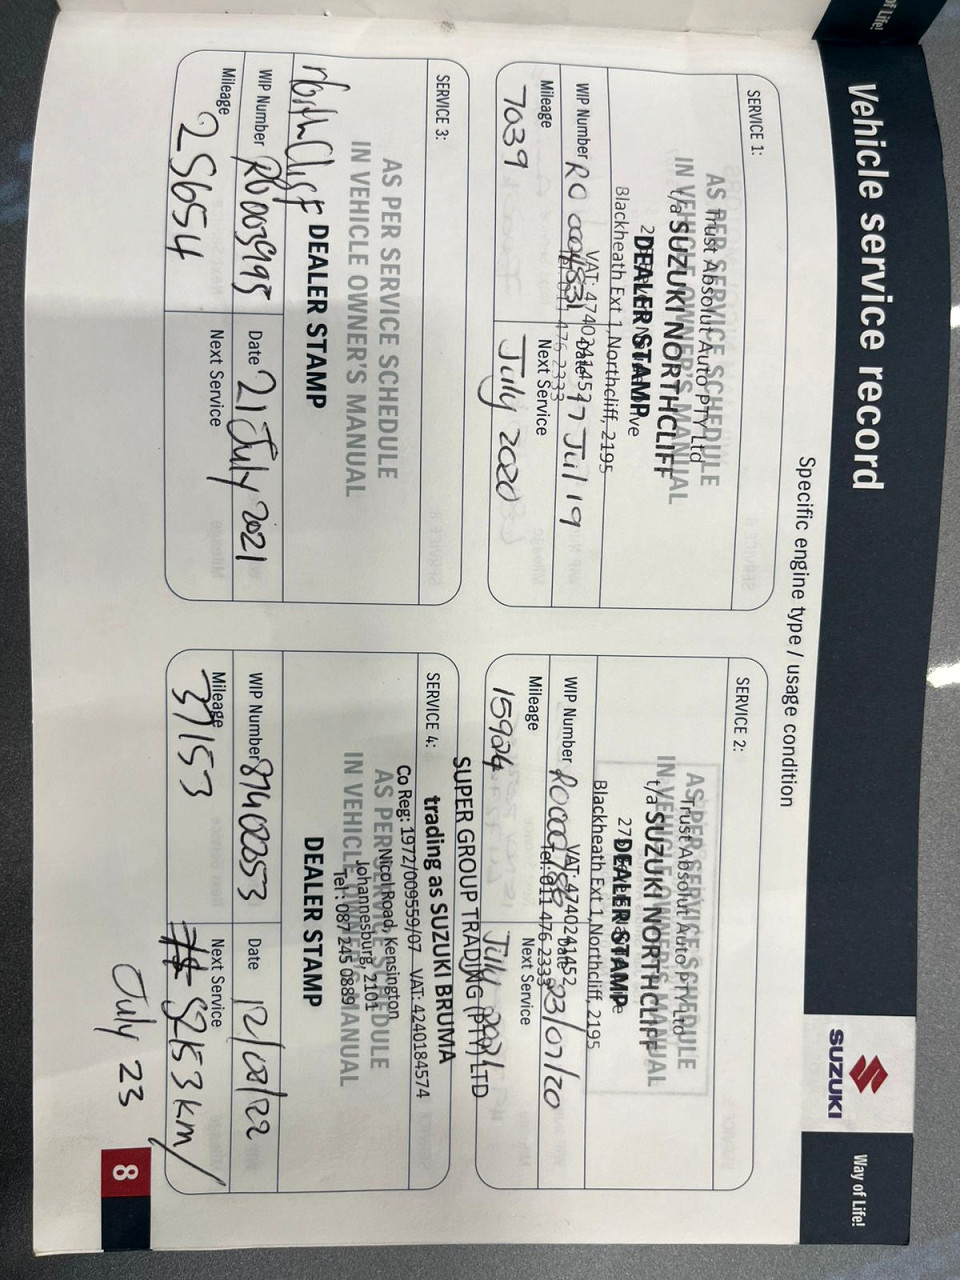 of Life!
Vehicle service record
SUZUKI
Way of Life!
Specific engine type / usage condition
SERVICE 1:
AS PER SERVICE SCHEDULE
IN VEHICLE OWNER'S MANUAL
Trust Absolut Auto PTY Ltd
t/a SUZUKI NORTHCLIFF
DEALER STAMP
Blackheath Ext 1, Northcliff, 2195
VAT: 4740241452
Tel: 011 476 2333
WIP Number
Date 17 Jul 19
Mileage 7039
Next Service July 2020
SERVICE 2:
AS PER SERVICE SCHEDULE
IN VEHICLE OWNER'S MANUAL
Trust Absolut Auto PTY Ltd
t/a SUZUKI NORTHCLIFF
DEALER STAMP
Blackheath Ext 1, Northcliff, 2195
VAT: 4740241452
Tel: 011 476 2333
WIP Number
Date 23/07/20
Mileage 15924
Next Service July 2021
SERVICE 3:
AS PER SERVICE SCHEDULE
IN VEHICLE OWNER'S MANUAL
DEALER STAMP
NorthCliff
WIP Number R0003995
Date 21 July 2021
Mileage 25654
Next Service
SERVICE 4:
SUPER GROUP TRADING (PTY) LTD
trading as SUZUKI BRUMA
Co Reg: 1972/009559/07 VAT: 4240184574
AS PER SERVICE SCHEDULE
IN VEHICLE OWNER'S MANUAL
Nicol Road, Kensington
Johannesburg, 2101
Tel: 087 245 0889
DEALER STAMP
WIP Number 87400053
Date 12/07/22
Mileage 37153
Next Service 52153 km/
July 23
8